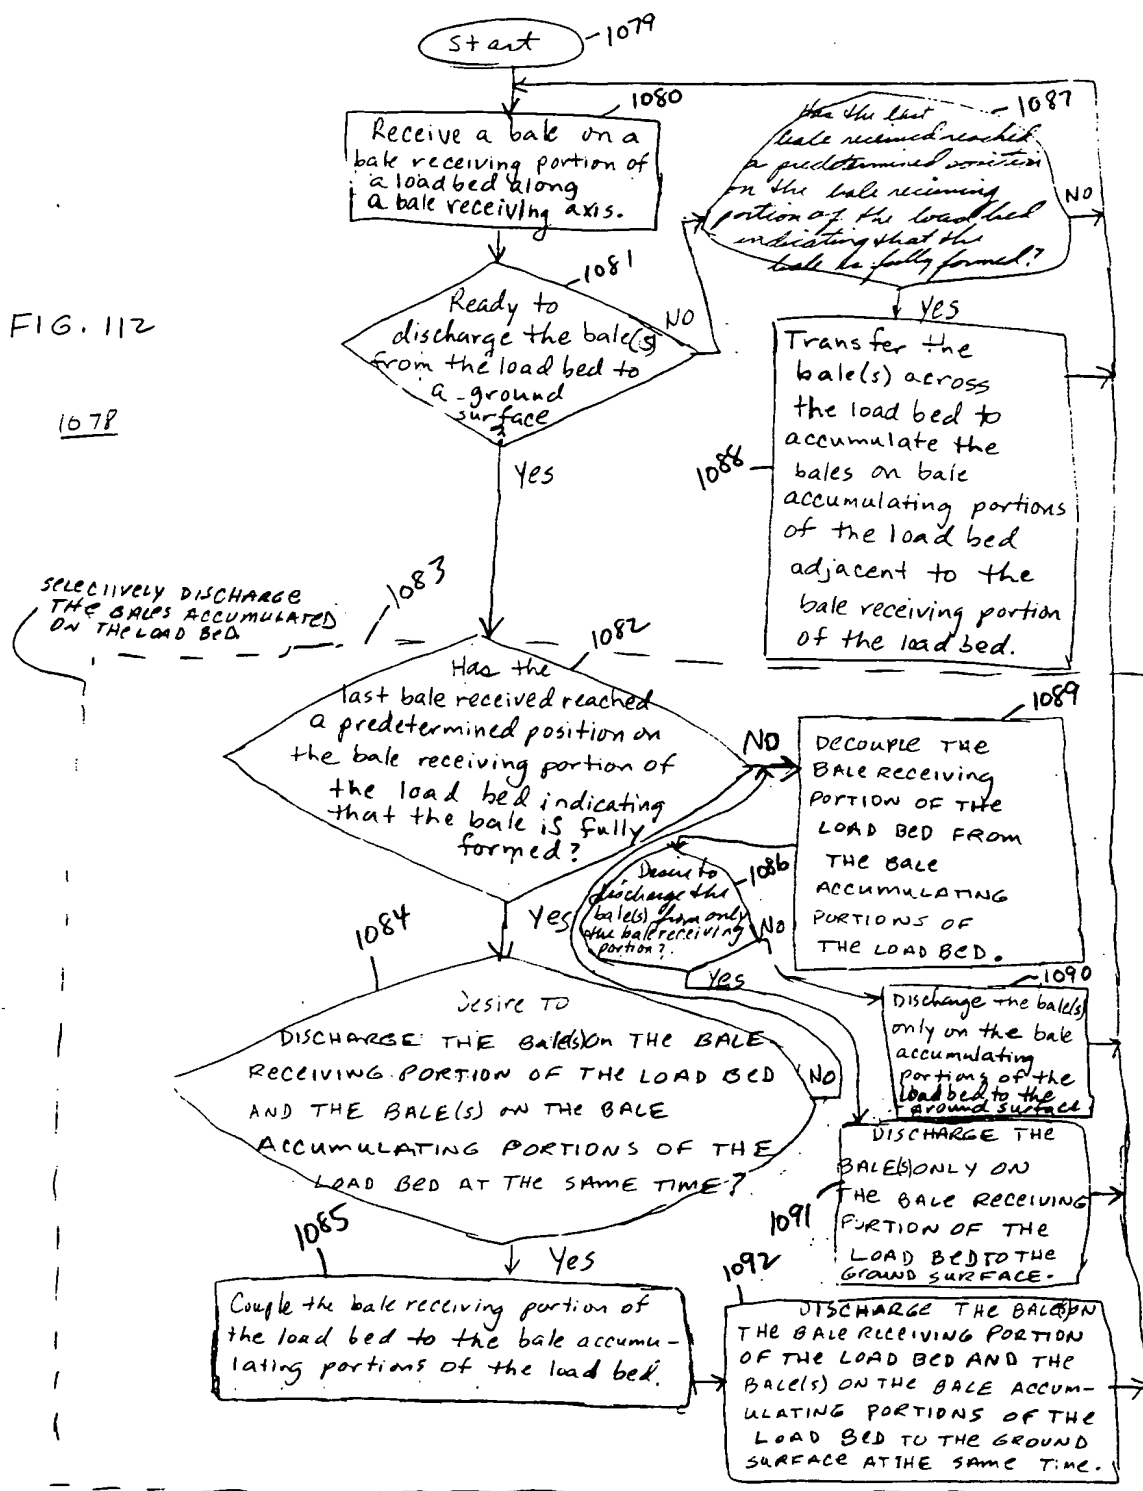 Start
1079
1080
Receive a bale on a
bale receiving portion of
a load bed along
a bale receiving axis.
1087
Has the last
bale received reached
a predetermined position
on the bale receiving
portion of the load bed
indicating that the
bale is fully formed?
NO
Yes
1081
Ready to
discharge the bale(s)
from the load bed to
a ground
surface
?
NO
Yes
FIG. 112
1078
Transfer the
bale(s) across
the load bed to
accumulate the
bales on bale
accumulating portions
of the load bed
adjacent to the
bale receiving portion
of the load bed.
1088
SELECTIVELY DISCHARGE
THE BALES ACCUMULATED
ON THE LOAD BED.
1083
1082
Has the
last bale received reached
a predetermined position on
the bale receiving portion of
the load bed indicating
that the bale is fully
formed?
NO
Yes
1089
DECOUPLE THE
BALE RECEIVING
PORTION OF THE
LOAD BED FROM
THE BALE
ACCUMULATING
PORTIONS OF
THE LOAD BED.
1086
Desire to
discharge the
bale(s) from only
the bale receiving
portion?
No
Yes
1084
Desire TO
DISCHARGE THE Bale(s) On THE BALE
RECEIVING PORTION OF THE LOAD BED
AND THE BALE(s) ON THE BALE
ACCUMULATING PORTIONS OF THE
LOAD BED AT THE SAME TIME?
NO
Yes
1090
Discharge the bale(s)
only on the bale
accumulating
portions of the
load bed to the
ground surface
1091
DISCHARGE THE
BALE(S) ONLY ON
THE BALE RECEIVING
PORTION OF THE
LOAD BED TO THE
GROUND SURFACE.
1085
Couple the bale receiving portion of
the load bed to the bale accumu-
lating portions of the load bed.
1092
DISCHARGE THE BALE(S) ON
THE BALE RECEIVING PORTION
OF THE LOAD BED AND THE
BALE(s) ON THE BALE ACCUM-
ULATING PORTIONS OF THE
LOAD BED TO THE GROUND
SURFACE AT THE SAME TIME.